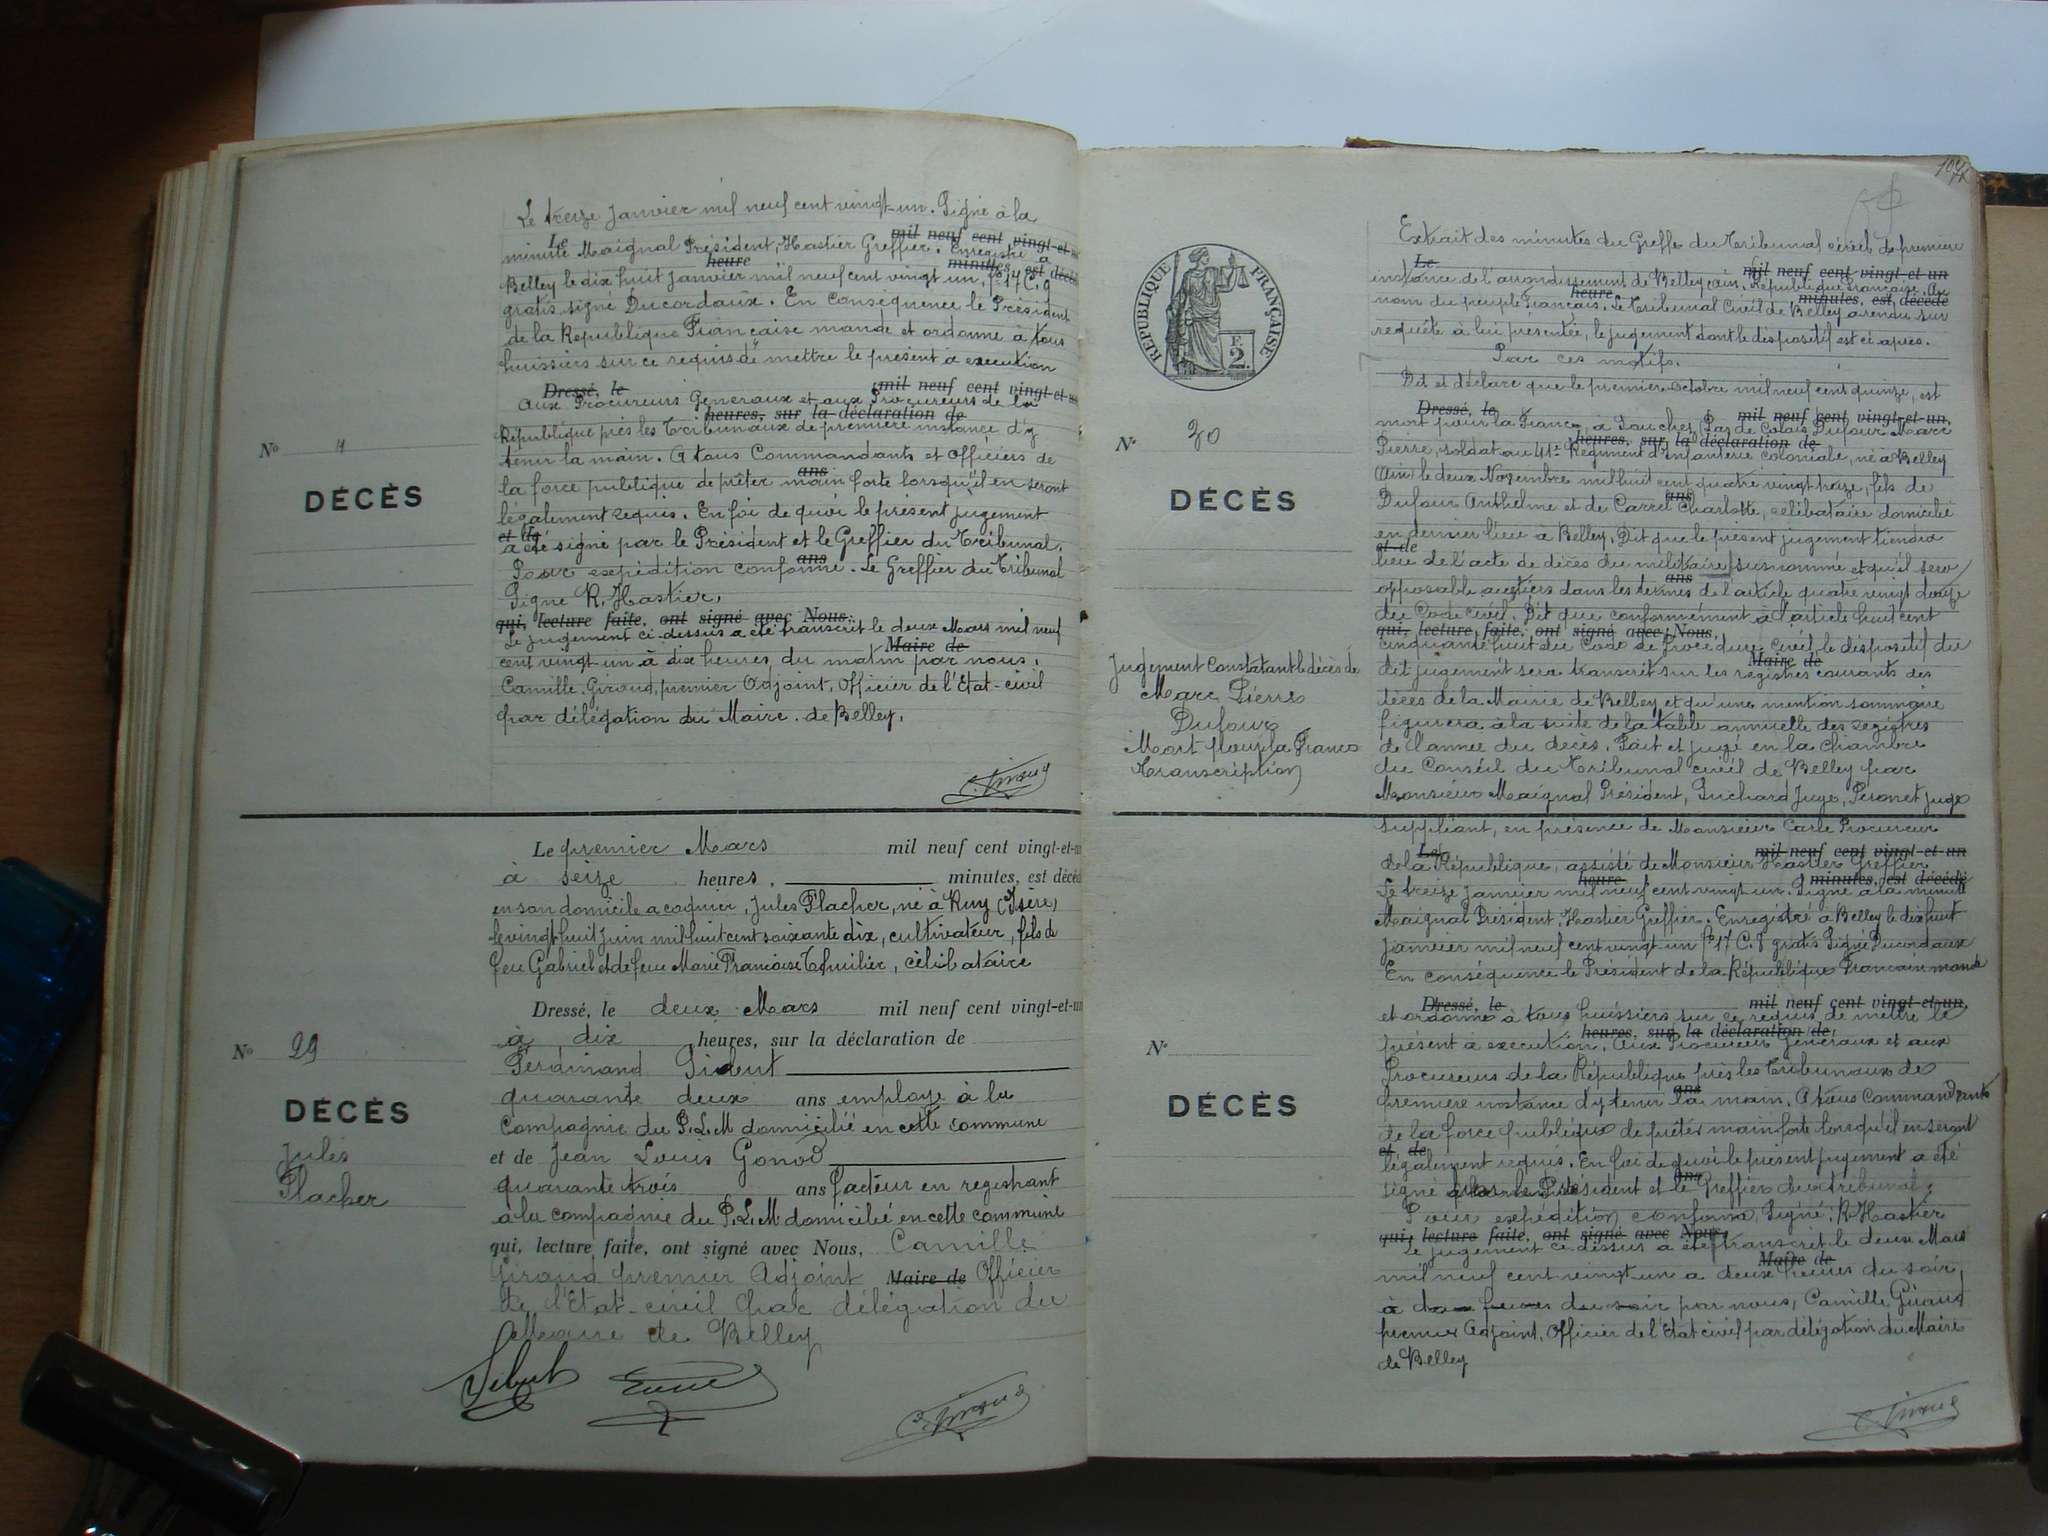 Le treize Janvier mil neuf cent vingt-un. Signé à la
Le mil neuf cent vingt-et-un
minute Maignal Président, Hastier Greffier. Enregistré à
heure minutes est décédé
Belley le dix huit Janvier mil neuf cent vingt un, f° 17 C. 9
gratis signé Ducordaux. En conséquence le Président
de la République Française mande et ordonne à tous
huissiers sur ce requis de mettre le présent a execution
Dressé, le mil neuf cent vingt-et-un
Aux Procureurs Generaux et aux Procureurs de la
heures, sur la déclaration de
République près les Tribunaux de première instance d'y
tenir la main. A tous Commandants et officiers de
ans
la force publique de prêter main forte lorsqu'il en seront
légalement requis. En foi de quoi le présent jugement
et de
a été signé par le Président et le Greffier du Tribunal.
ans
Pour expédition conforme. Le Greffier du Tribunal
Signé R. Hastier.
qui, lecture faite, ont signé avec Nous,
Le jugement ci-dessus a été transcrit le deux Mars mil neuf
Maire de
cent vingt-un à dix heures du matin par nous,
Camille Giroud, premier Adjoint, Officier de l'Etat-civil
par délégation du Maire de Belley.
N°
DÉCÈS
C. Giroud
Le premier Mars mil neuf cent vingt-et-un
à seize heures, minutes, est décédé
en son domicile a coquier, Jules Placher, né à Ruy (Isère)
le vingt huit Juin mil huit cent soixante dix, cultivateur, fils de
feu Gabriel et de feue Marie Françoise Thuilier, célibataire
Dressé, le deux Mars mil neuf cent vingt-et-un
à dix heures, sur la déclaration de
Ferdinand
quarante deux ans employe à la
Compagnie du P.L.M domicilié en cette commune
et de Jean Louis Gonod
quarante trois ans facteur en registrant
à la compagnie du P.L.M domicilié en cette commune
qui, lecture faite, ont signé avec Nous, Camille
Giroud premier Adjoint Maire de Officier
de l'Etat-civil par délégation du
Maire de Belley
N° 29
DÉCÈS
Jules
Placher
C. Giroud
RÉPUBLIQUE FRANÇAISE
F.
2.
N° 30
DÉCÈS
Jugement Constatant le décès de
Marc Pierre
Dufour
Mort pour la France
Transcription
Extrait des minutes du Greffe du Tribunal civil de première
Le mil neuf cent vingt-et-un
instance de l'arrondissement de Belley, Ain. République Française. Au
heure minutes, est décédé
nom du peuple Français. Le Tribunal Civil de Belley a rendu sur
requête à lui présentée, le jugement dont le dispositif est ci après.
Par ces motifs.
Dit et déclare que le premier octobre mil neuf cent quinze, est
Dressé, le mil neuf cent vingt-et-un,
mort pour la France, à Souchez, Pas de Calais Dufour Marc
heures, sur la déclaration de
Pierre, soldat au 41e Régiment d'Infanterie coloniale, né à Belley
Ain le deux Novembre mil huit cent quatre vingt treize, fils de
ans
Dufour Anthelme et de Carrel Charlotte, célibataire domicilié
en dernier lieu à Belley. Dit que le présent jugement tiendra
et de
lieu de l'acte de décès du militaire susnommé et qu'il sera
ans
opposable au tiers dans les termes de l'article quatre vingt douze
du Code civil. Dit que conformément à l'article huit cent
qui, lecture faite, ont signé avec Nous,
cinquante huit du Code de Procédure Civil le dispositif du
Maire de
dit jugement sera transcrit sur les registres courants des
décès de la Mairie de Belley et qu'une mention sommaire
figurera à la suite de la table annuelle des registres
de l'année du décès. Fait et jugé en la chambre
du Conseil du Tribunal civil de Belley par
Monsieur Maignal Président, Juge, Peronet juge
suppléant, en présence de Monsieur Carle Procureur
Le mil neuf cent vingt-et-un
de la République, assisté de Monsieur Hastier Greffier
heure minutes, est décédé
Le treize Janvier mil neuf cent vingt un. Signé à la minute
Maignal Président. Hastier Greffier. Enregistré à Belley le dix huit
janvier mil neuf cent vingt un f° 17 C. 9 gratis Signé Ducordaux
En conséquence le Président de la République Française mande
Dressé, le mil neuf cent vingt-et-un,
et ordonne à tous huissiers sur ce requis de mettre le
heures, sur la déclaration de
présent a execution. Aux Procureurs Généraux et aux
Procureurs de la République près les Tribunaux de
ans
première instance d'y tenir la main. A tous Commandants
de la force publique de prêter main forte lorsqu'il en seront
et de
légalement requis. En foi de quoi le présent jugement a été
ans
signé par le Président et le Greffier du tribunal.
Pour expédition conforme, Signé: R Hastier
qui, lecture faite, ont signé avec Nous,
Le jugement ci-dessus a été transcrit le deux Mars
Maire de
mil neuf cent vingt-un a deux heures du soir
à deux heures du soir par nous, Camille Giroud
premier Adjoint, Officier de l'Etat civil par délégation du Maire
de Belley
N°
DÉCÈS
C. Giroud